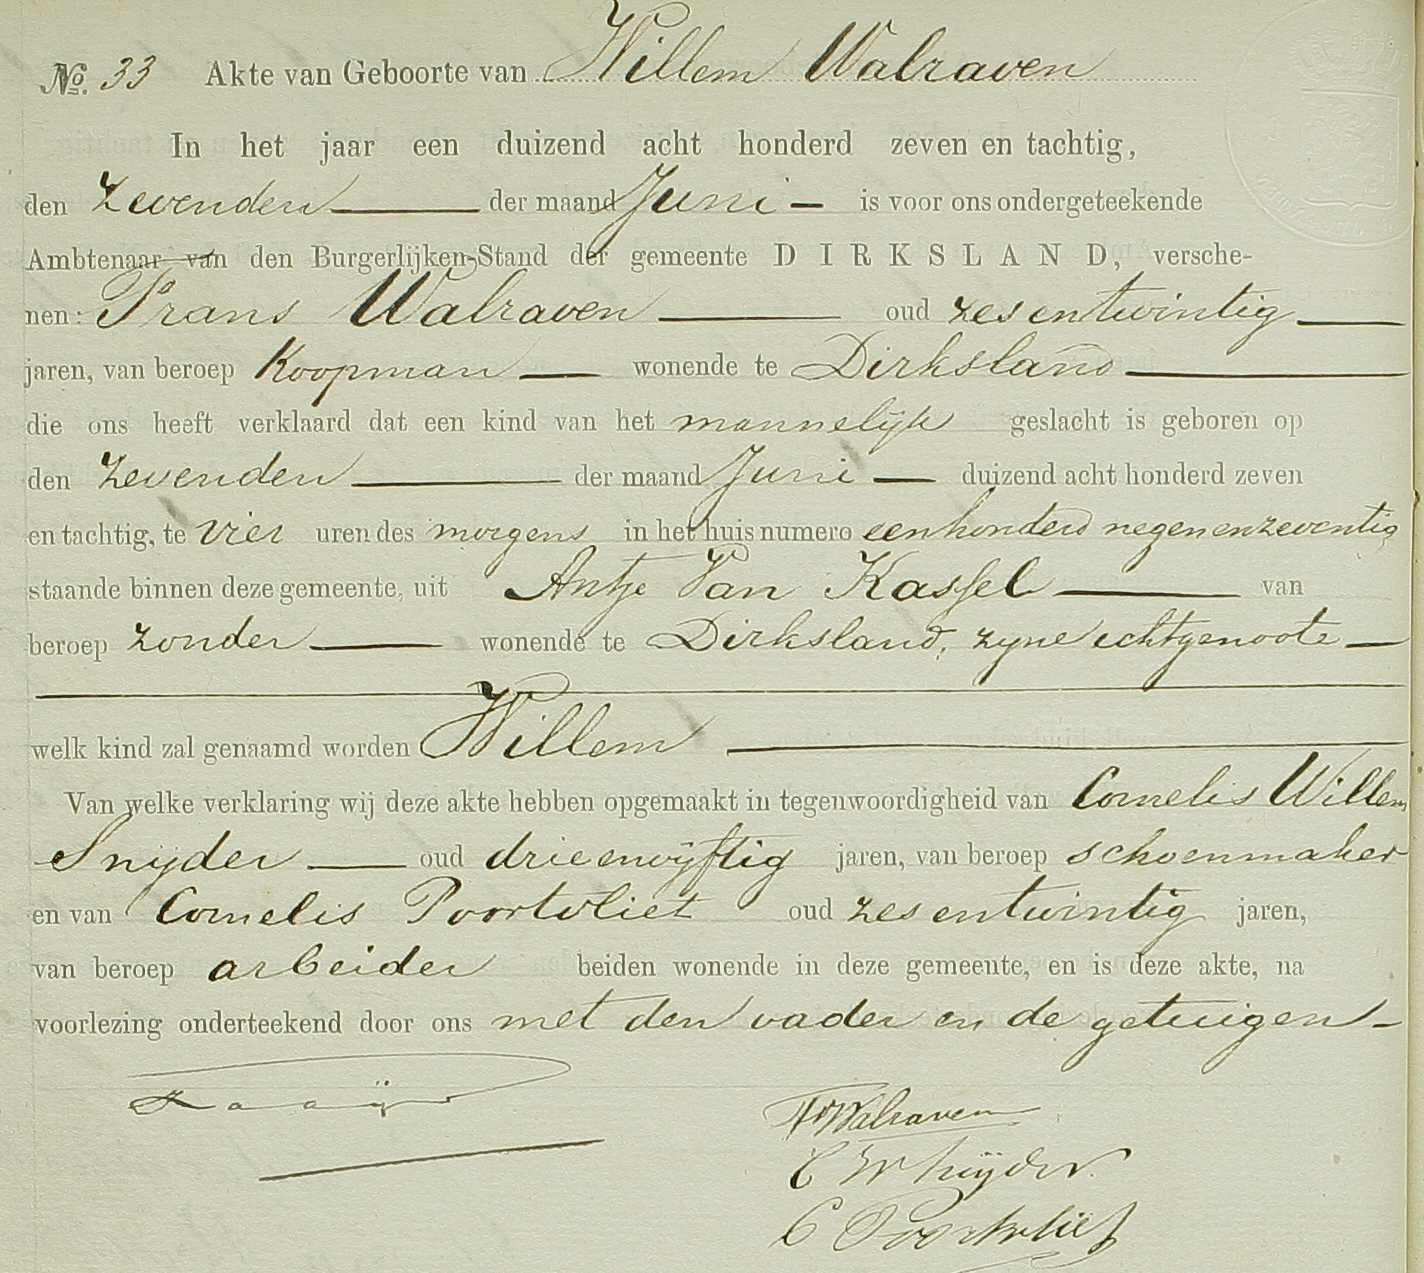 No. 33 Akte van Geboorte van Willem Walraven
In het jaar een duizend acht honderd zeven en tachtig,
den zevenden der maand Juni is voor ons ondergeteekende
Ambtenaar van den Burgerlijken Stand der gemeente DIRKSLAND, versche-
nen: Frans Walraven oud zes entwintig
jaren, van beroep Koopman wonende te Dirksland
die ons heeft verklaard dat een kind van het mannelijk geslacht is geboren op
den zevenden der maand Juni duizend acht honderd zeven
en tachtig, te vier uren des morgens in het huis numero eenhonderd negenenzeventig
staande binnen deze gemeente, uit Antje Van Kassel van
beroep zonder wonende te Dirksland, zyne echtgenoote
welk kind zal genaamd worden Willem
Van welke verklaring wij deze akte hebben opgemaakt in tegenwoordigheid van Cornelis Willem
Snijder oud drieenvijftig jaren, van beroep schoenmaker
en van Cornelis Poortvliet oud zes entwintig jaren,
van beroep arbeider beiden wonende in deze gemeente, en is deze akte, na
voorlezing onderteekend door ons met den vader en de getuigen
Zaaijer
F Walraven
C W Snijder
C Poortvliet